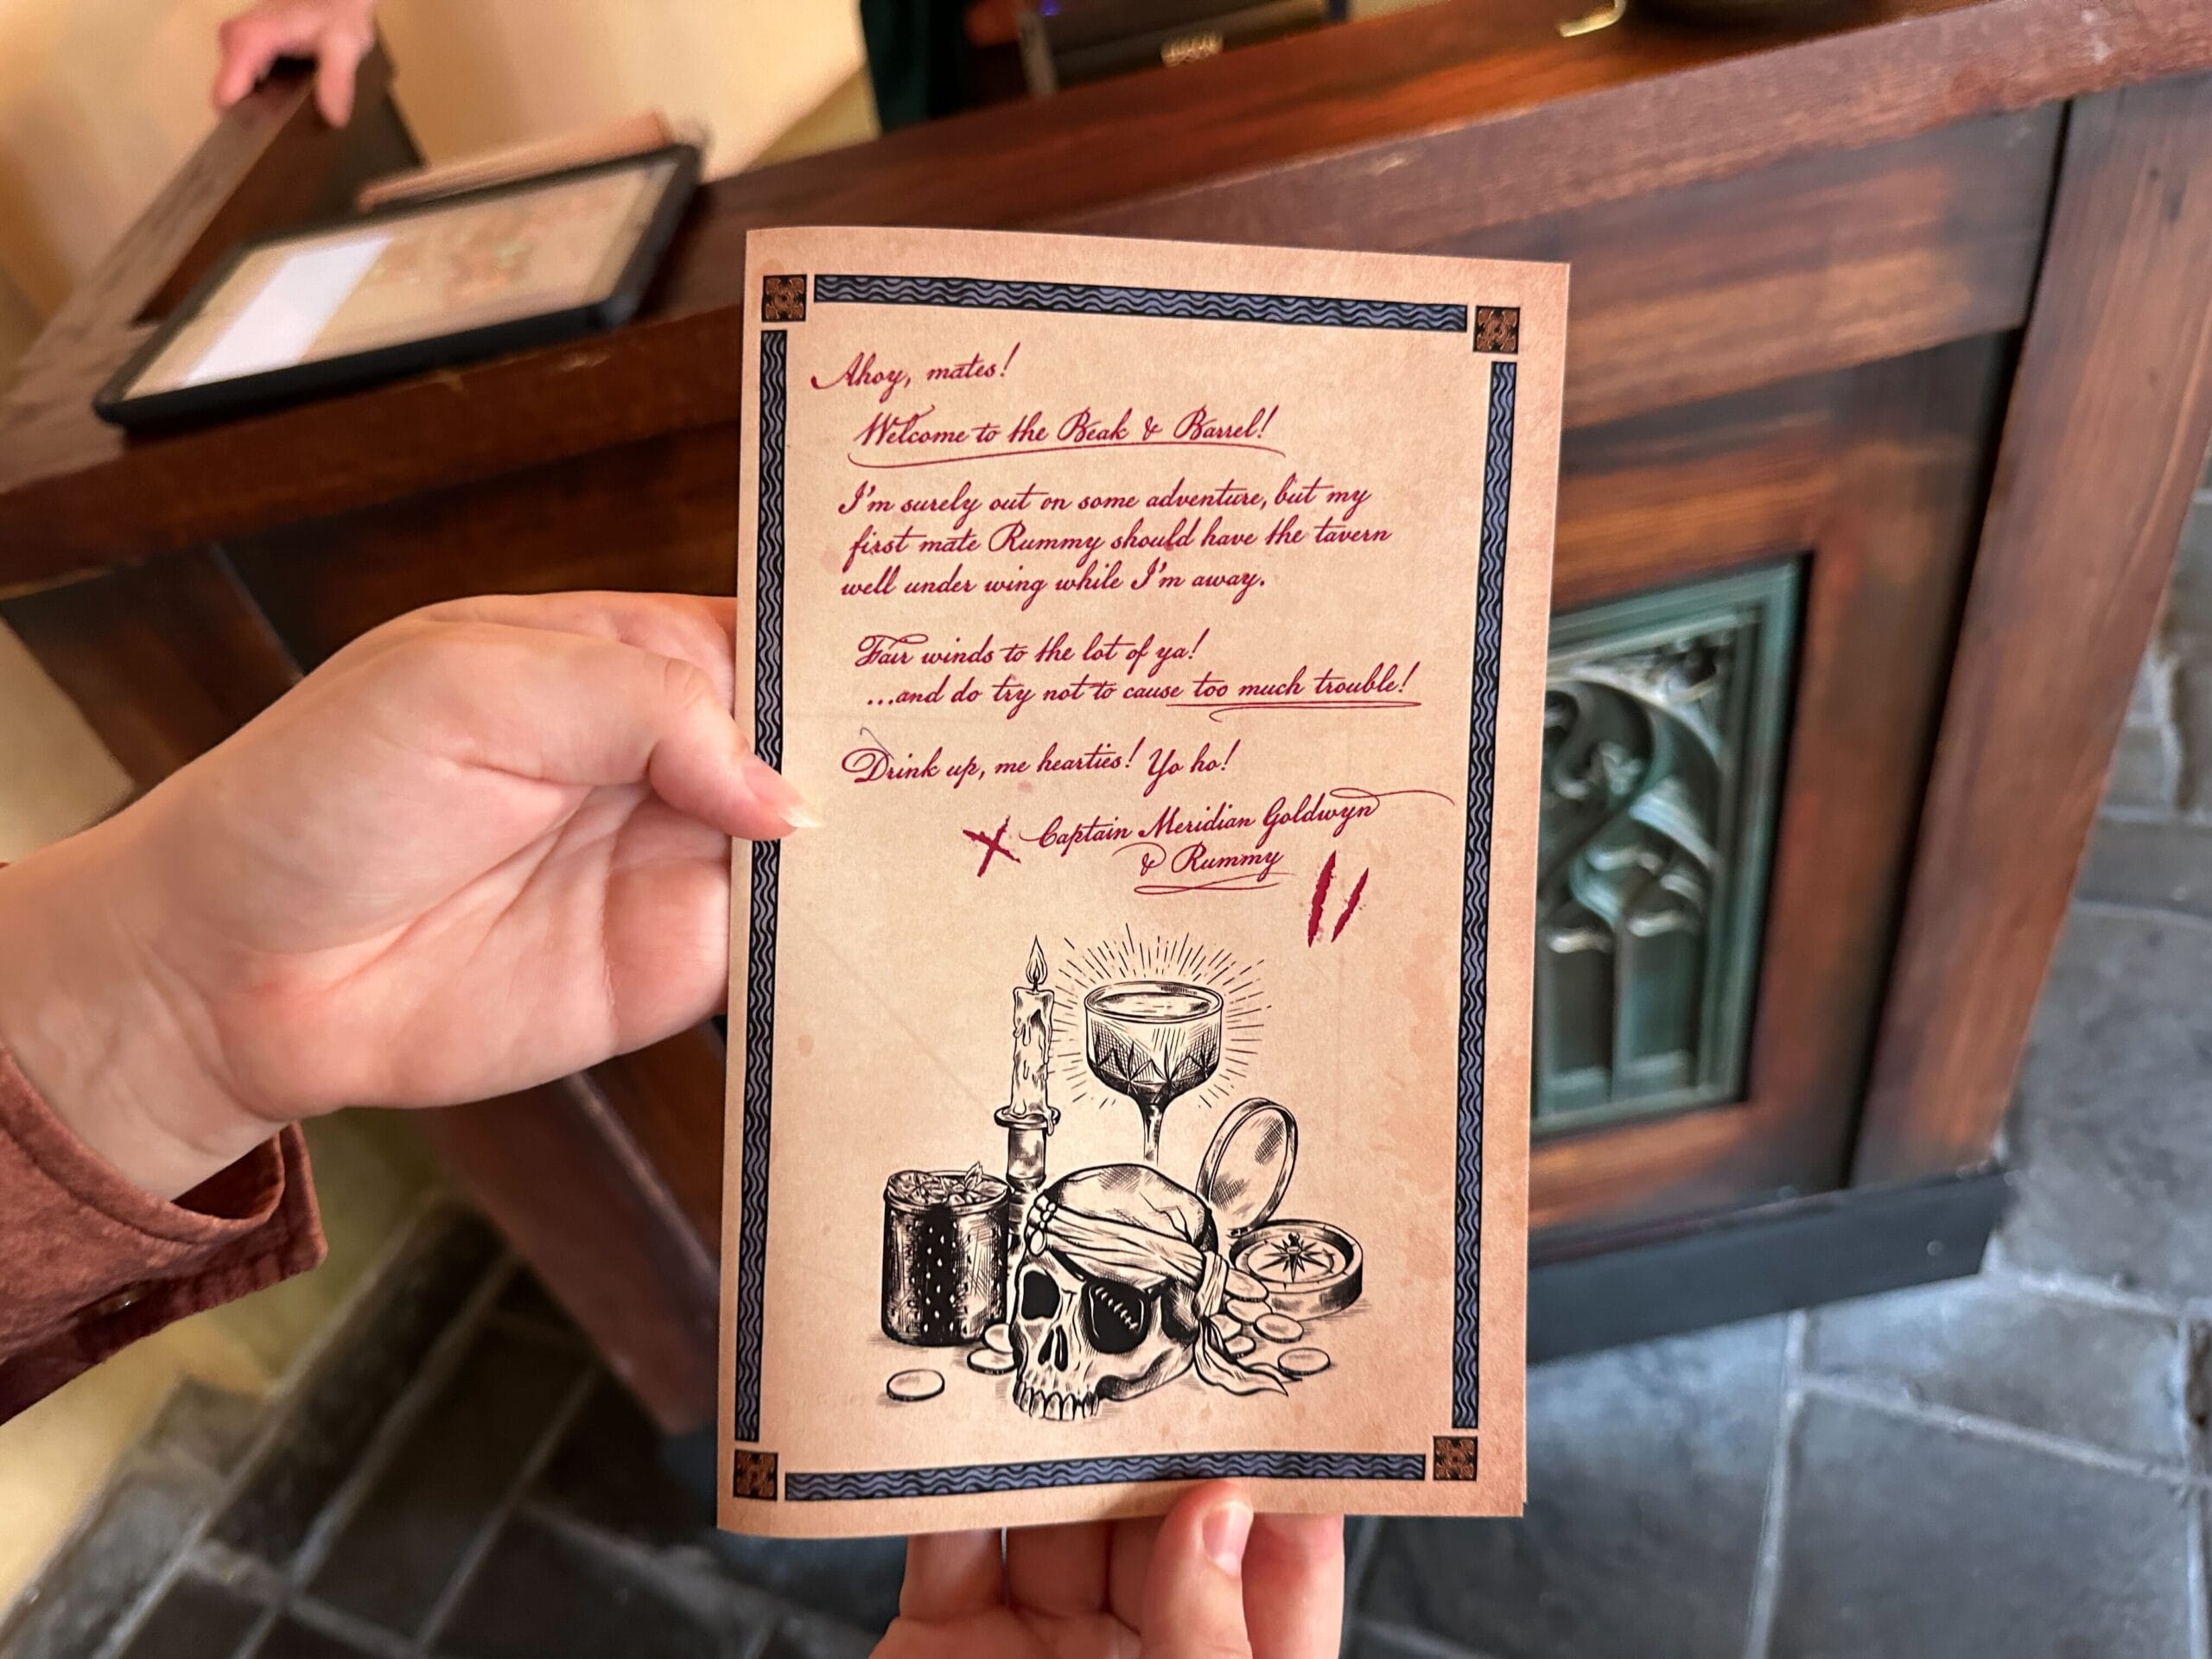 Ahoy, mates!
Welcome to the Beak & Barrel!
I'm surely out on some adventure, but my
first mate Rummy should have the tavern
well under wing while I'm away.
Fair winds to the lot of ya!
...and do try not to cause too much trouble!
Drink up, me hearties! Yo ho!
X Captain Meridian Goldwyn
& Rummy